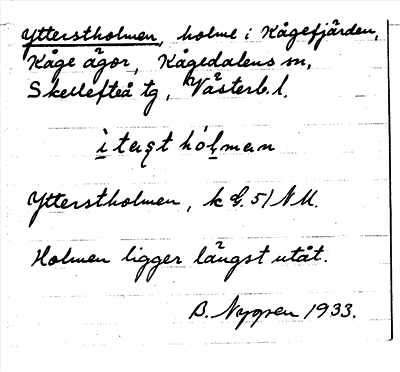 Ytterstholmen, holme i Kågefjärden,
Kåge ägor, Kågedalens sn,
Skellefteå tg, Västerb. l.
Ytterstholmen, k bl. 51 NU.
Holmen ligger längst utåt.
B. Nygren 1933.